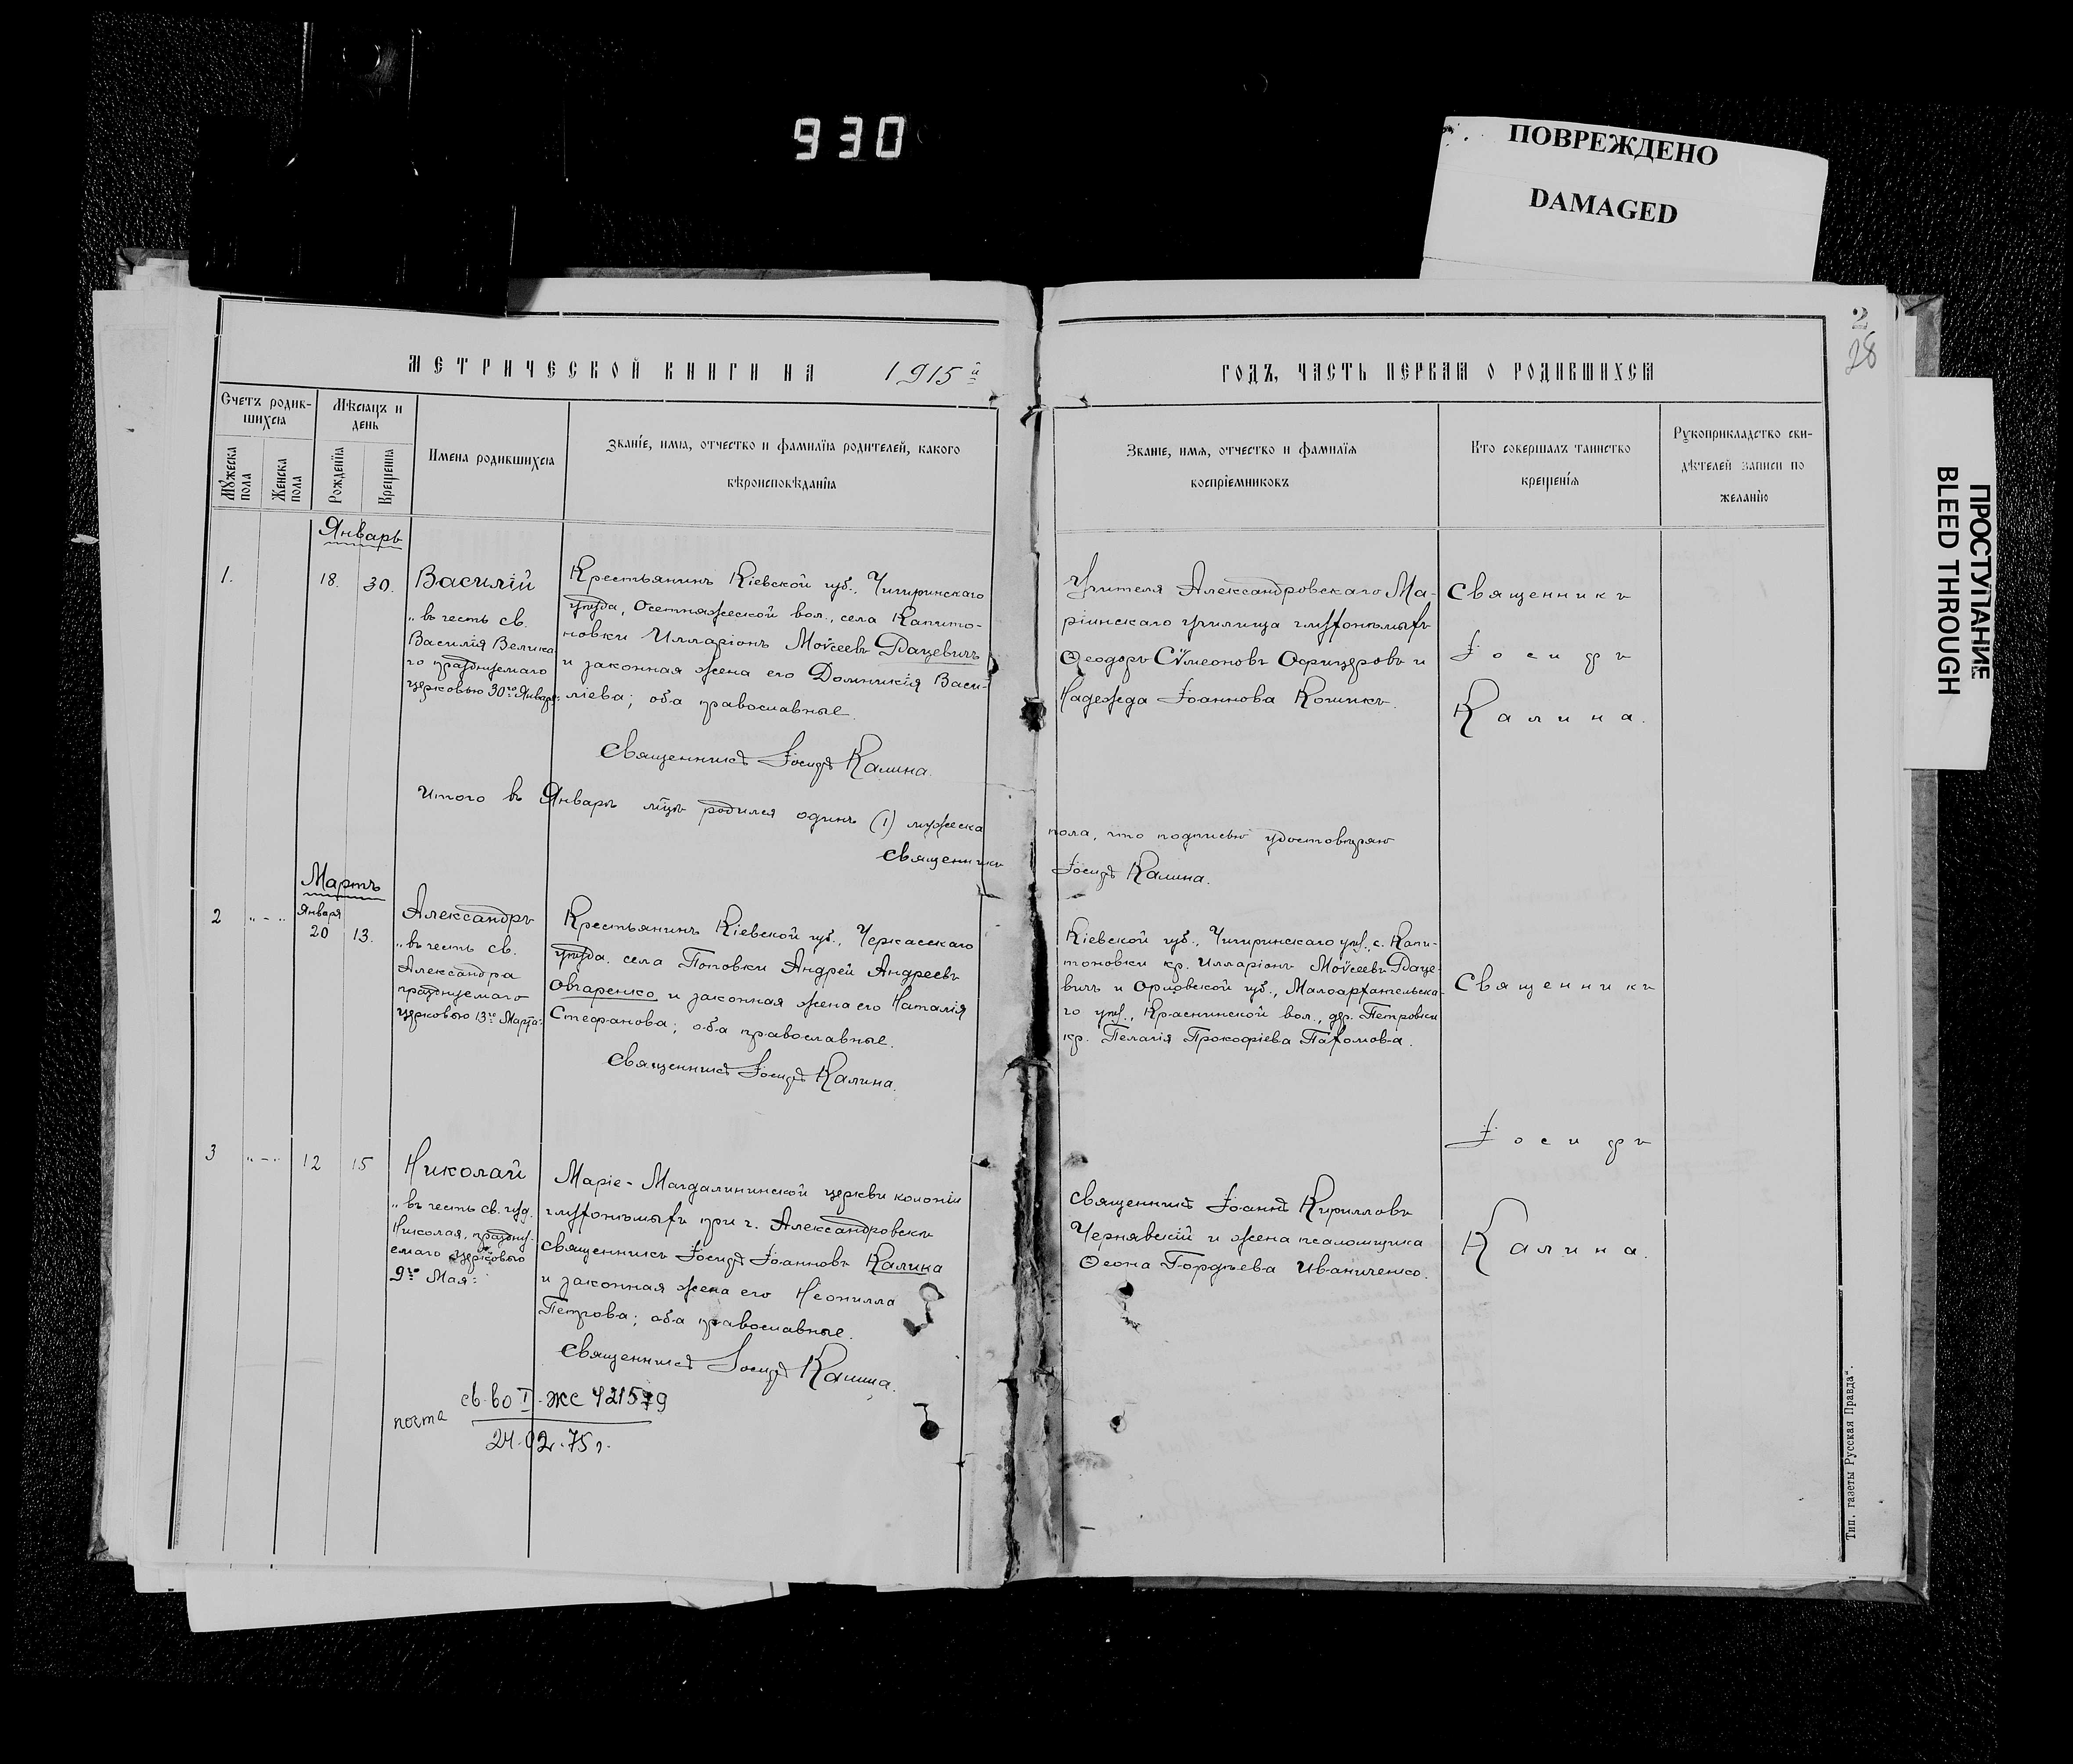 930
ПОВРЕЖДЕНО
DAMAGED
ПРОСТУПАНИЕ
BLEED THROUGH
2
28
МЕТРИЧЕСКОЙ КНИГИ НА 1915й
ГОДЪ, ЧАСТЬ ПЕРВАЯ О РОДИВШИХСЯ
Счетъ родив-
шихся
Мужеска
пола
Женска
пола
Мѣсяцъ и
день
Рожденія
Крещенія
Имена родившихся
Званіе, имя, отчество и фамилія родителей, какого
вѣроисповѣданія
Званіе, имя, отчество и фамилія
воспріемниковъ
Кто совершалъ таинство
крещенія
Рукоприкладство сви-
дѣтелей записи по
желанію
Январь
1.
18.
30.
Василій
„ въ честь св.
Василія Велика
го празднуемаго
церковью 30го Января:
Крестьянинъ Кіевской губ., Чигиринскаго
уѣзда, Осетняжеской вол., села Капито-
новки Илларіонъ Моѵсеевъ Дацевичъ
и законная жена его Домникія Васи-
ліева; оба православные.
Священникъ Іосифъ Калина.
Учителя Александровскаго Ма-
ріинскаго училища глухонѣмыхъ
Ѳеодоръ Сѵмеоновъ Офицеровъ и
Надежда Іоаннова Кошикъ.
Священникъ
Іосифъ
Калина.
Итого въ Январѣ мцѣ родился одинъ (1) мужеска
пола, что подписью удостовѣряю
Священникъ
Іосифъ Калина.
Мартъ
2
„ - „
Января
20
13.
Александръ
„ въ честь св.
Александра
празднуемаго
церковью 13го Марта:
Крестьянинъ Кіевской губ., Черкасскаго
уѣзда. села Поповки Андрей Андреевъ
Овчаренко и законная жена его Наталія
Стефанова; оба православные.
Священникъ Іосифъ Калина.
Кіевской губ., Чигиринскаго уѣз., с. Капи-
тоновки кр. Илларіонъ Моѵсеевъ Даце-
вичъ и Орловской губ., Малоархангельска-
го уѣз., Краснинской вол., дер. Петровки
кр. Пелагія Прокофіева Пахомова.
Священникъ
3
„ - „
12
15
Николай
„ въ честь св. чуд.
Николая, праздну-
емаго церковью
9го Мая:
Маріе-Магдалининской церкви колоніи
глухонѣмыхъ при г. Александровскѣ
священникъ Іосифъ Іоанновъ Калина
и законная жена его Неонилла
Петрова; оба православные.
Священникъ Іосифъ Калина.
Священникъ Іоаннъ Кирилловъ
Чернявскій и жена псаломщика
Ѳеона Гордѣева Иваниченко.
Іосифъ
Калина.
почта
св-во I-ЖС
24.02.75 г.
Тип. газеты Русская Правда".